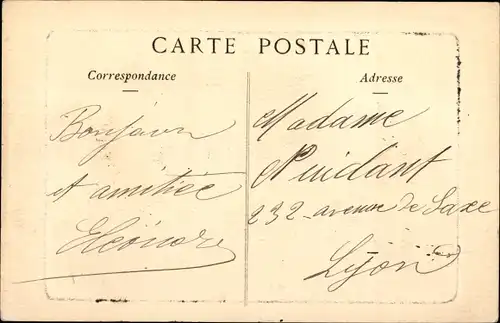 CARTE POSTALE
Correspondance
Adresse
Bonjour
et amitiée
Eléonore
Madame
232 avenue de Saxe
Lyon